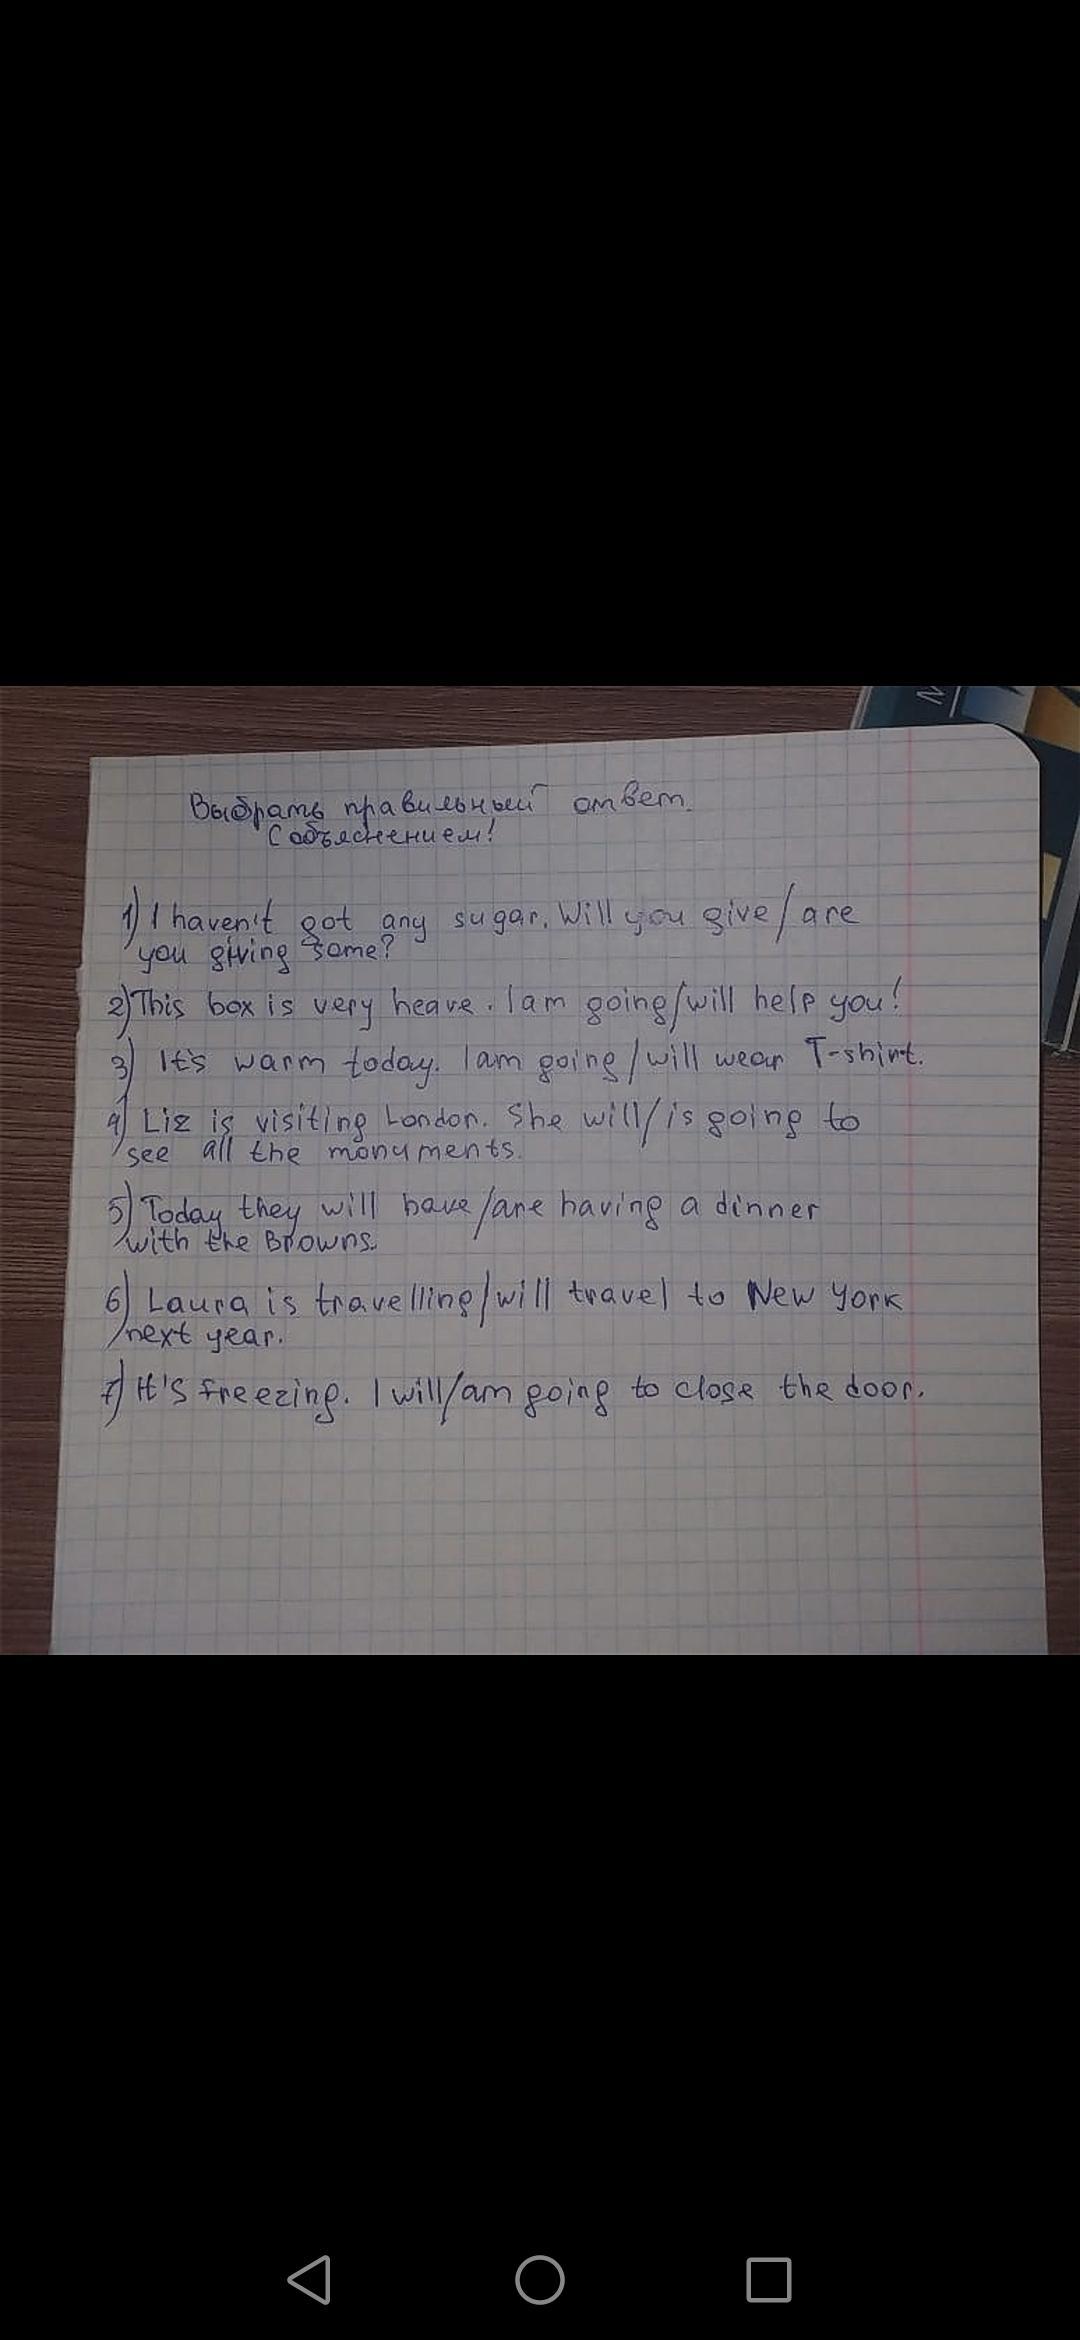 Выбрать правильный ответ.
С объяснением!
1) I haven't got any sugar. Will you give/are
you giving some?
2) This box is very heave. I am going/will help you!
3) It's warm today. I am going/will wear T-shirt.
4) Liz is visiting London. She will/is going to
see all the monuments.
5) Today they will have/are having a dinner
with the Browns.
6) Laura is travelling/will travel to New York
next year.
7) It's freezing. I will/am going to close the door.